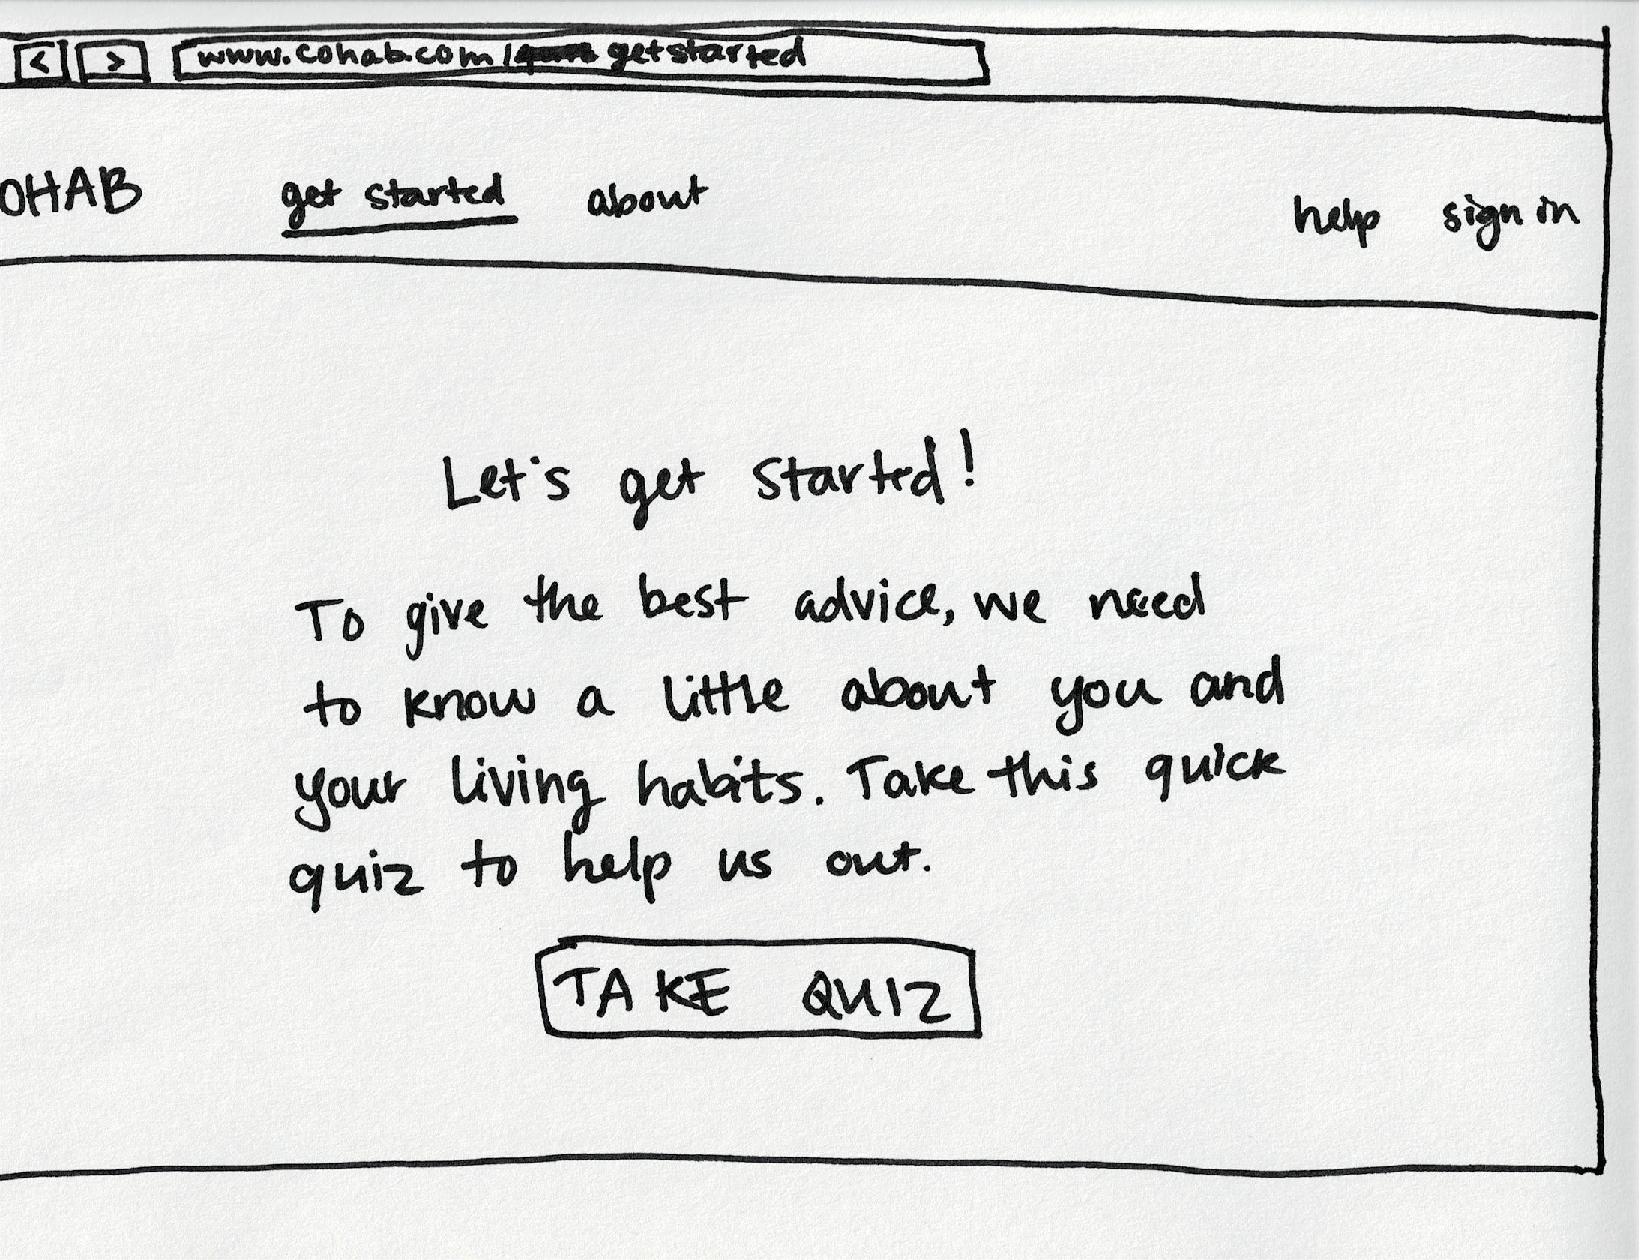 < > www.cohab.com/ getstarted
OHAB get started about help sign in
Let's get started!
To give the best advice, we need
to know a little about you and
your living habits. Take this quick
quiz to help us out.
TAKE QUIZ